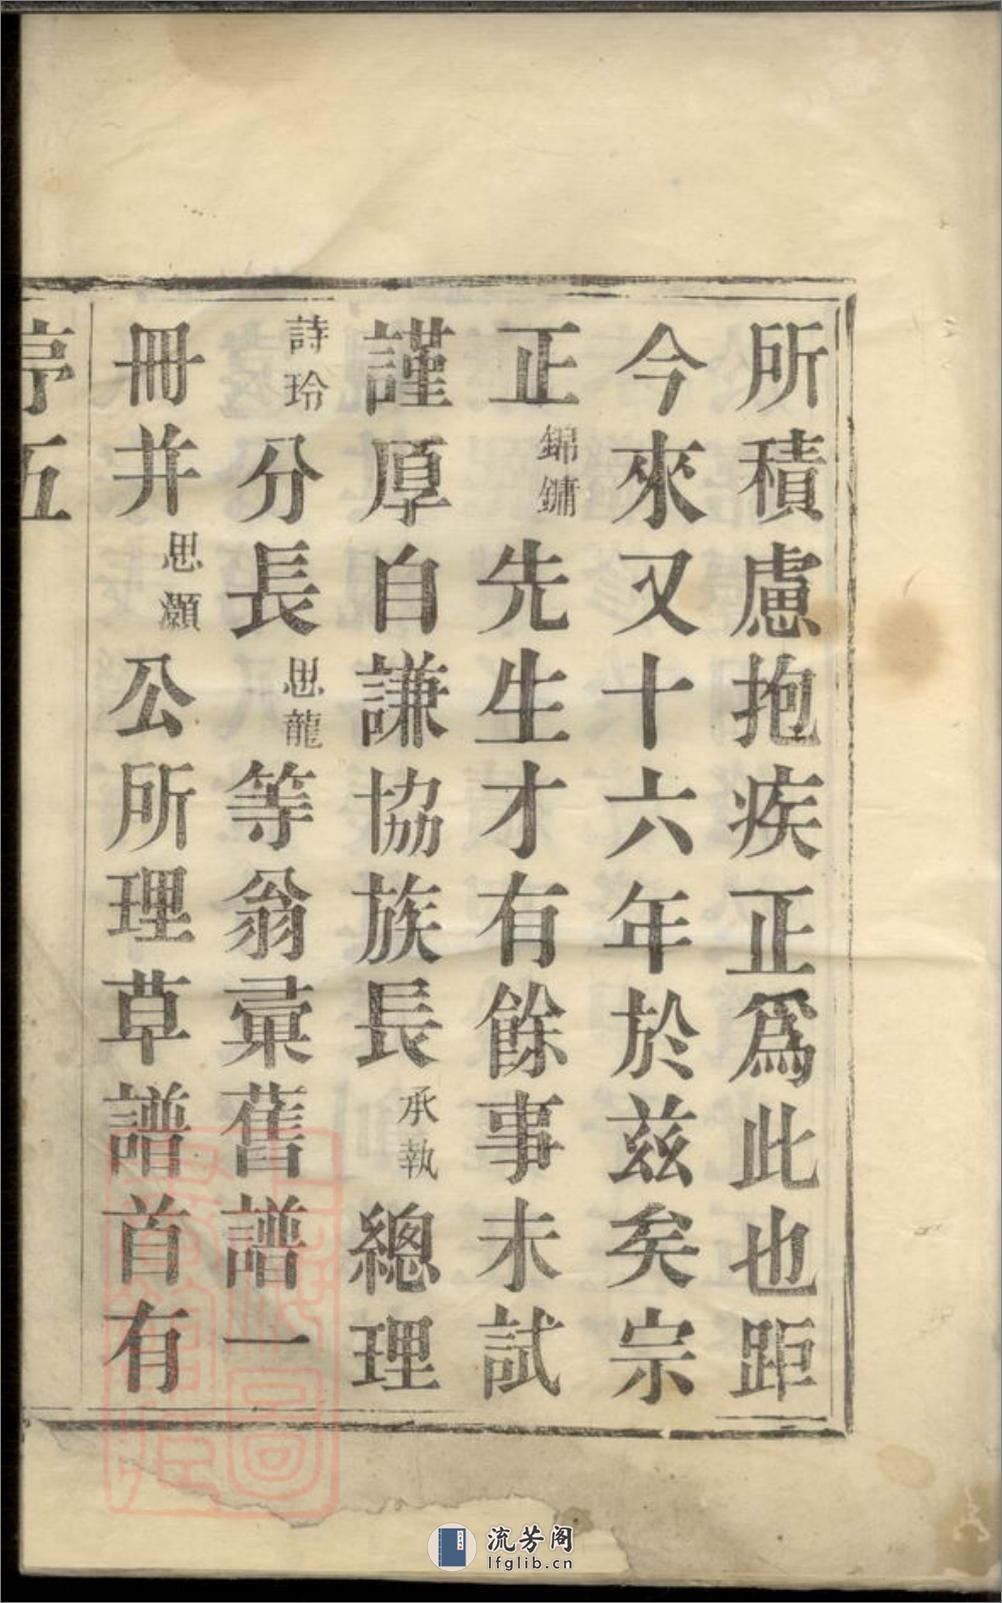 所積慮抱疾正爲此也距
今來又十六年於兹矣宗
正錦鏞先生才有餘事未試
謹厚自謙協族長承執總理
詩玲分長思龍等翁彙舊譜一
冊并思灝公所理草譜首有
序五
流芳阁
lfglib.cn